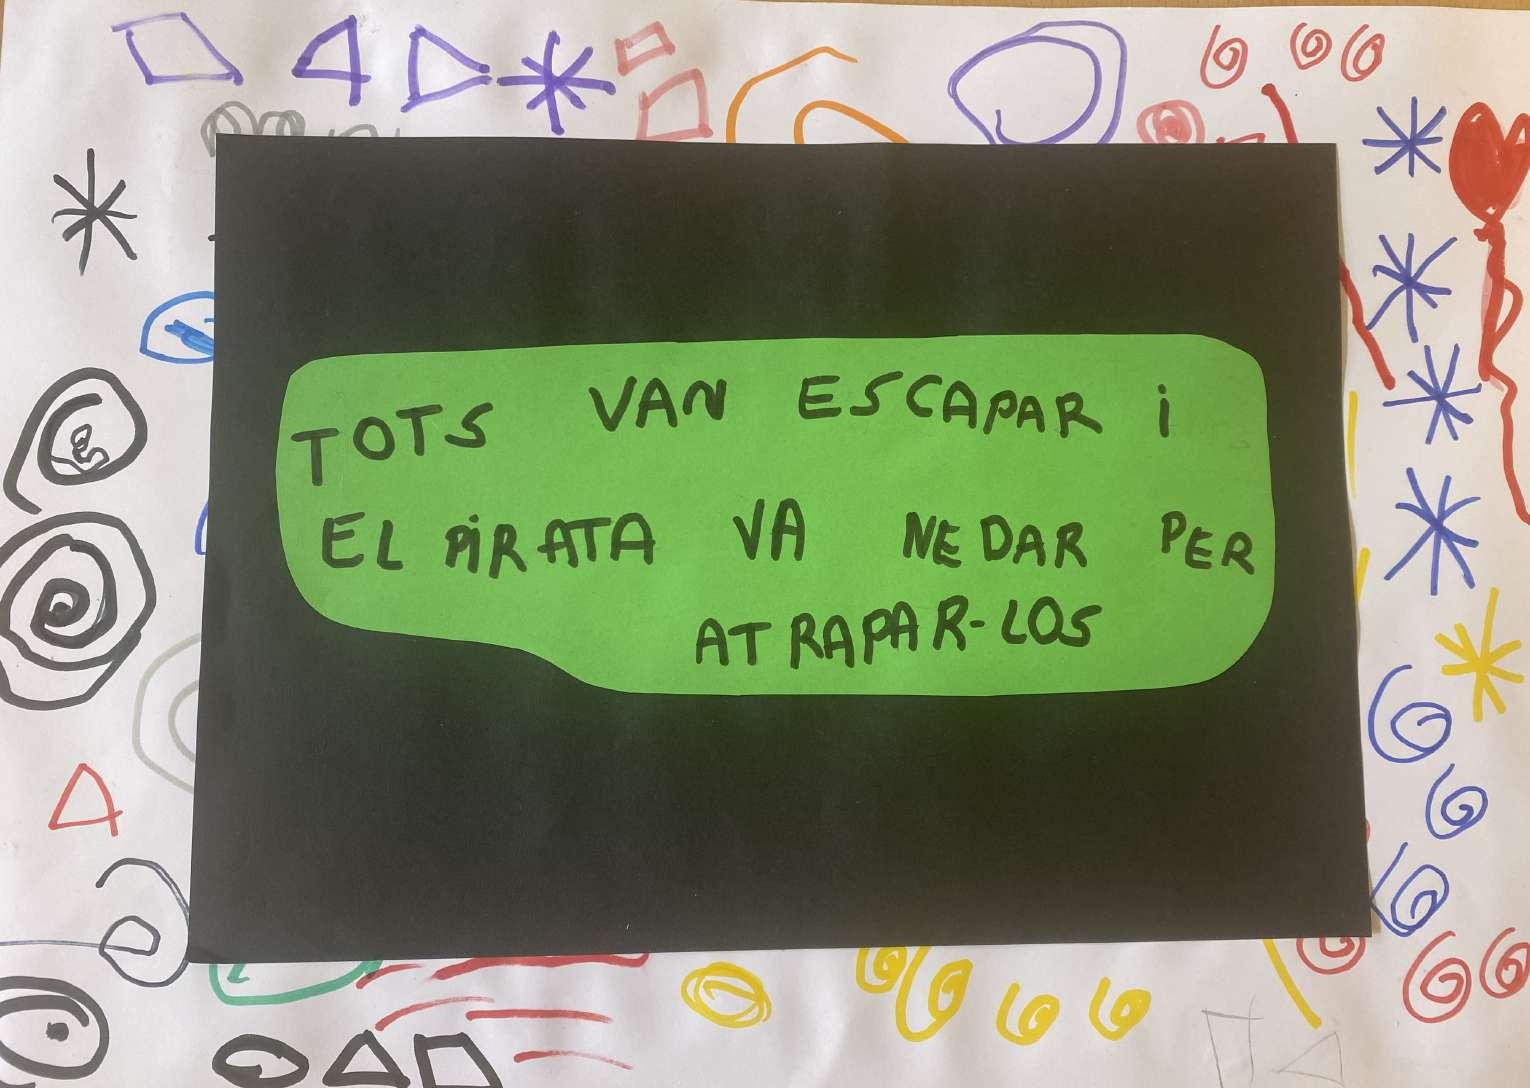 TOTS VAN ESCAPAR i
EL PIRATA VA NEDAR PER
ATRAPAR-LOS